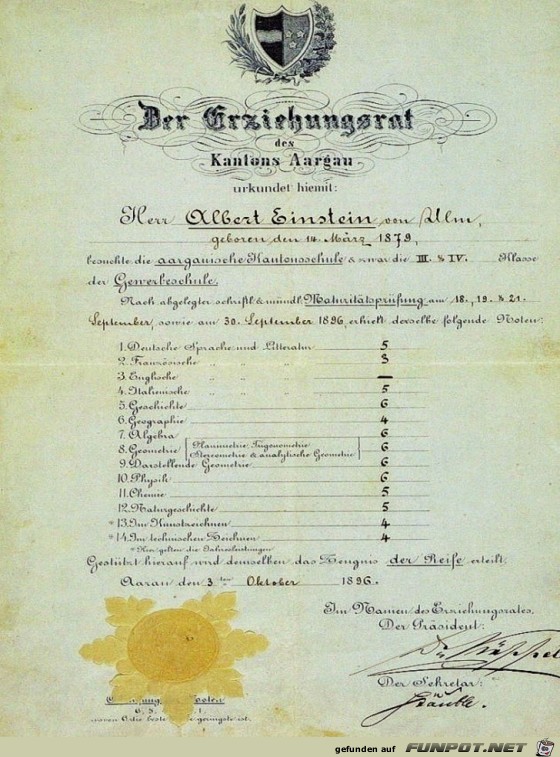 Der Erziehungsrat
des
Kantons Aargau
urkundet hiemit:
Herr Albert Einstein von Ulm,
geboren den 14. März 1879,
besuchte die aargauische Kantonsschule & zwar die III. & IV. Klasse
der Gewerbeschule.
Nach abgelegter schriftl. & mündl. Maturitätsprüfung am 18., 19. & 21.
September, sowie am 30. September 1896, erhielt derselbe folgende Noten:
1. Deutsche Sprache und Litteratur 5
2. Französische " " " 3
3. Englische " " " —
4. Italienische " " " 5
5. Geschichte 6
6. Geographie 4
7. Algebra 6
8. Geometrie (Planimetrie, Trigonometrie, Stereometrie & analytische Geometrie) 6
9. Darstellende Geometrie 6
10. Physik 6
11. Chemie 5
12. Naturgeschichte 5
*13. Im Kunstzeichnen 4
*14. Im technischen Zeichnen 4
*Hier gelten die Jahresleistungen
Gestützt hierauf wird demselben das Zeugnis der Reife erteilt.
Aarau den 3ten Oktober 1896.
Im Namen des Erziehungsrates,
Der Präsident:
Der Sekretär:
Noten
6. 5. 1.
wovon 6 die beste geringste ist.
gefunden auf FUNPOT.NET